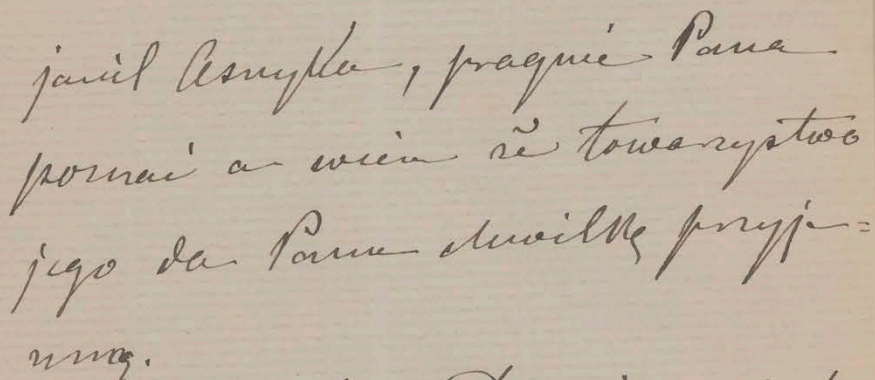 jaciół Asnyka, pragnie Pana
poznać a wiem że towarzystwo
jego da Panu chwilkę przyje=
mną.